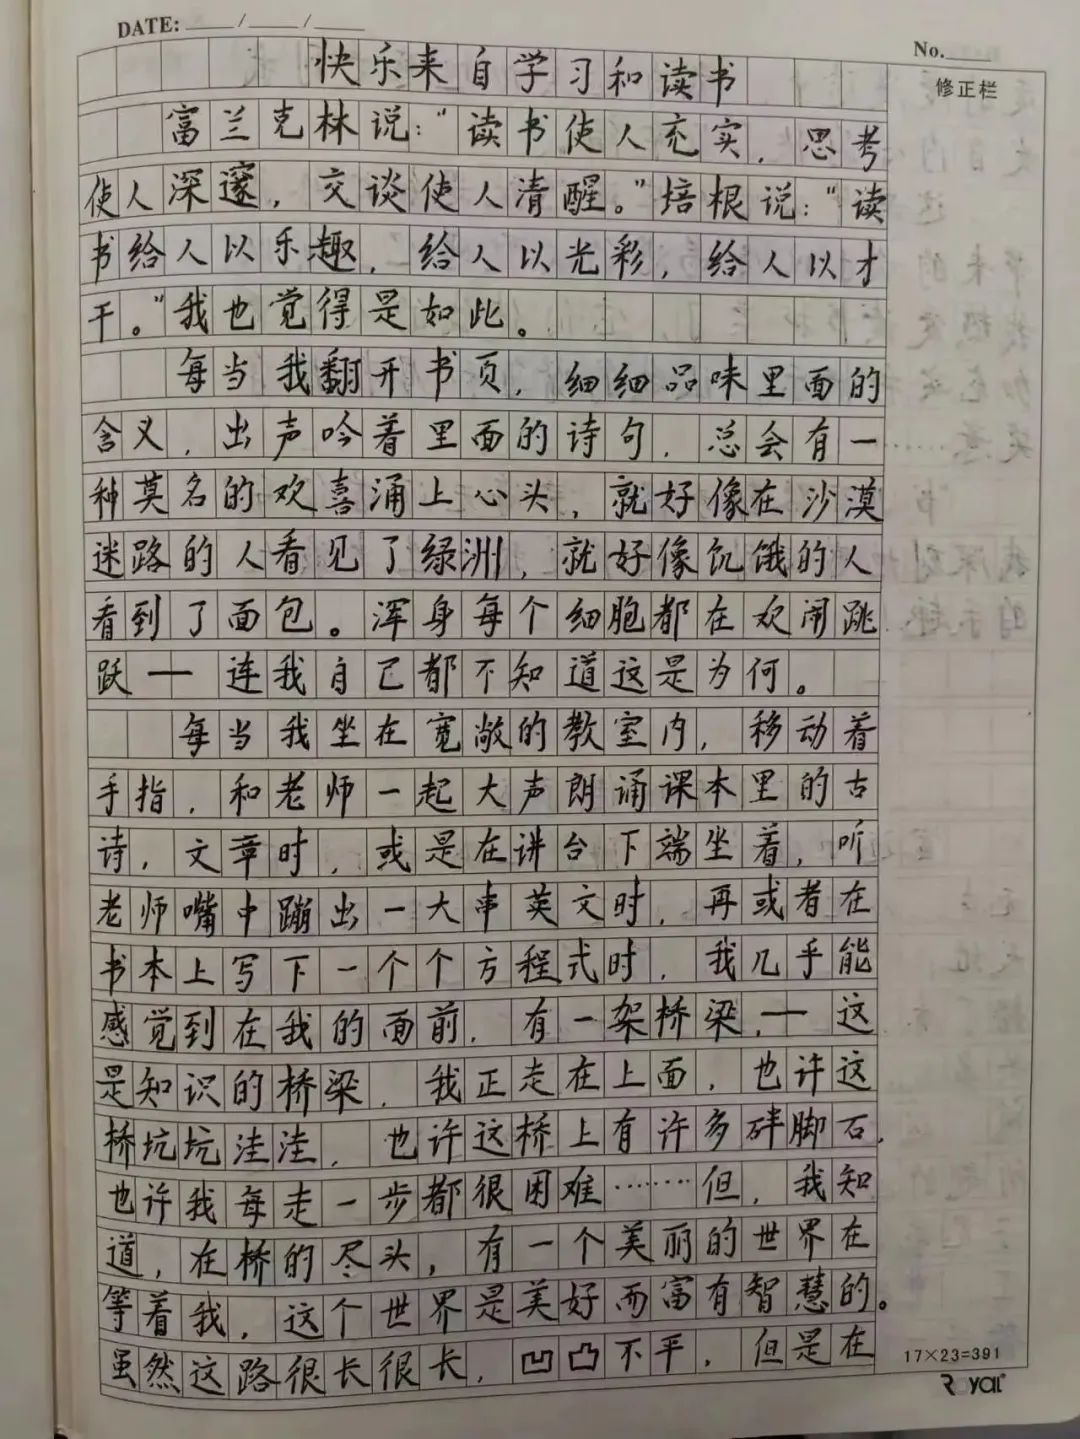 DATE: ___/___/___
No.___
修正栏
快乐来自学习和读书
富兰克林说：“读书使人充实，思考
使人深邃，交谈使人清醒。”培根说：“读
书给人以乐趣，给人以光彩，给人以才
干。”我也觉得是如此。
每当我翻开书页，细细品味里面的
含义，出声吟着里面的诗句，总会有一
种莫名的欢喜涌上心头，就好像在沙漠
迷路的人看见了绿洲，就好像饥饿的人
看到了面包。浑身每个细胞都在欢闹跳
跃——连我自己都不知道这是为何。
每当我坐在宽敞的教室内，移动着
手指，和老师一起大声朗诵课本里的古
诗，文章时，或是在讲台下端坐着，听
老师嘴中蹦出一大串英文时，再或者在
书本上写下一个个方程式时，我几乎能
感觉到在我的面前，有一架桥梁，——这
是知识的桥梁，我正走在上面，也许这
桥坑坑洼洼，也许这桥上有许多砰脚石，
也许我每走一步都很困难……但，我知
道，在桥的尽头，有一个美丽的世界在
等着我，这个世界是美好而富有智慧的。
虽然这路很长很长，凹凸不平，但是在
17×23=391
Royal